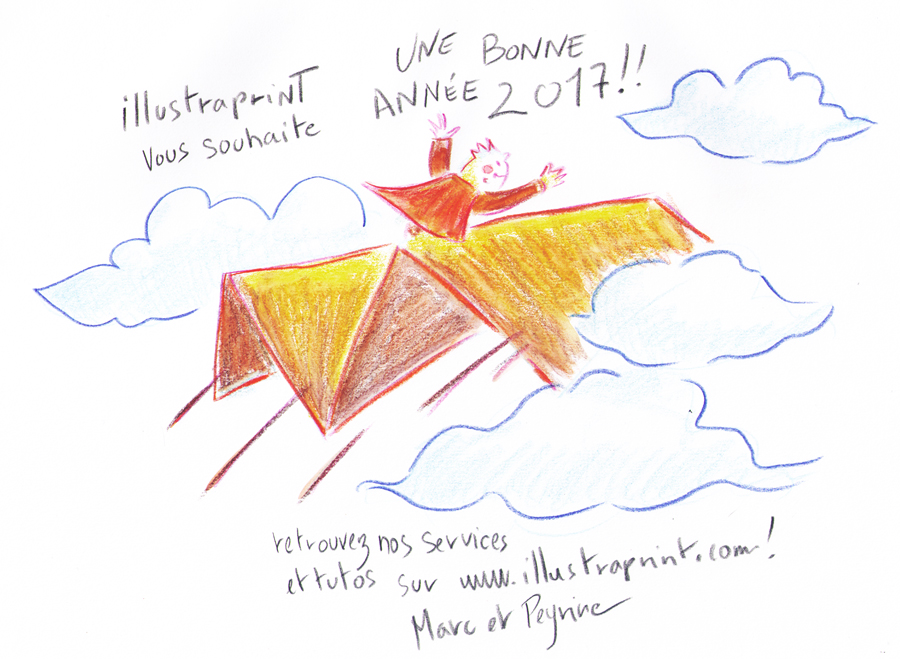 illustraprinT
vous souhaite
UNE BONNE
ANNÉE 2017!!
retrouvez nos services
et tutos sur www.illustraprint.com!
Marc et Peyrine